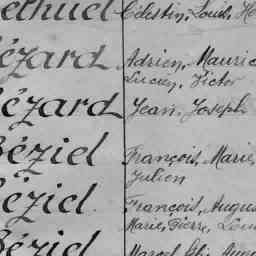 ethuel Célestin, Louis, H
ézard Adrien, Mauric
Lucien, Victor
ézard Jean, Joseph
Béziel François, Marie,
Julien
éziel François, Augus
Marie, Pierre, Loui
Béziel Marcel